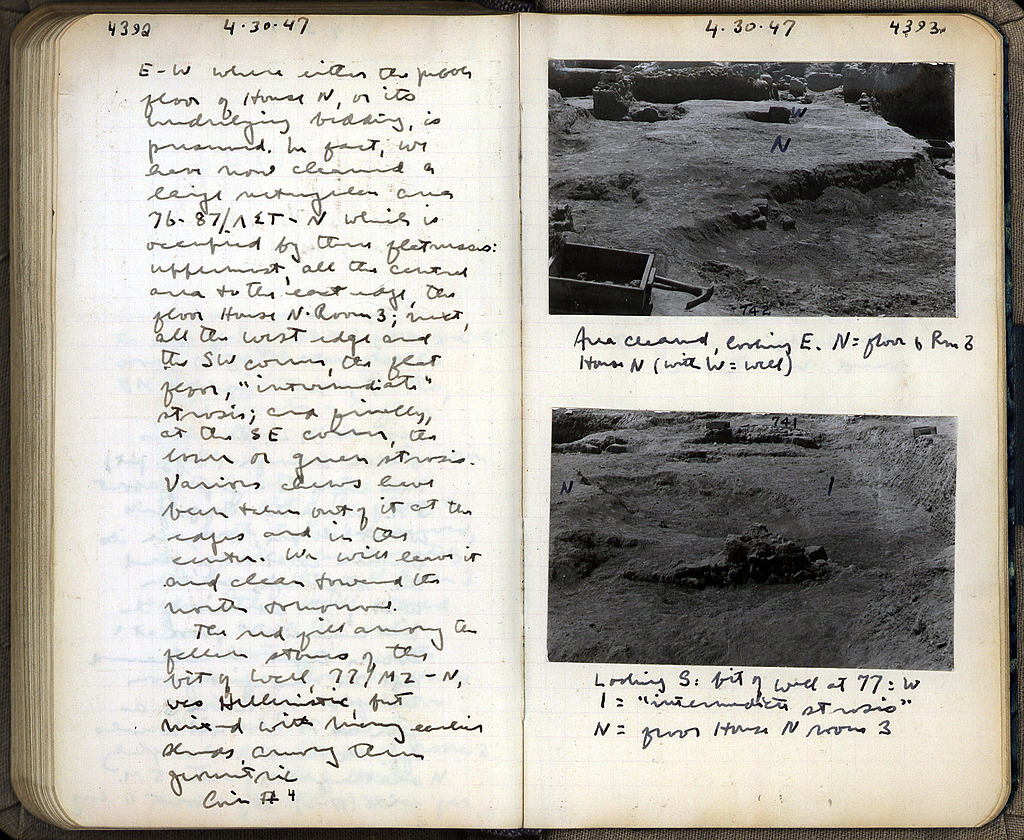 4392 4·30·47
E-W where either the pebble
floor of House N, or its
underlying bedding, is
preserved. In fact, we
have now cleaned a
large rectangular area
76-87/ΛΣΤ-N which is
occupied by three flat masses:
uppermost, all the central
area to the east edge, the
floor House N·Room 3; next,
all the west edge and
the SW corner, the flat
floor, "intermediate"
strosis; and finally,
at the SE corner, the
lower or green strosis.
Various chews have
been taken out of it at the
edges and in the
center. We will leave it
and clean toward the
north tomorrow.
The red fill among the
fallen stones of the
bit of wall, 77/ -N,
was Hellenistic, but
mixed with many earlier
sherds, among them
geometric
Coin # 4
4·30·47 4393
W
N
742
Area cleaned, looking E. N = floor of Rm 3
House N (with W = well)
741
N
I
Looking S: bit of wall at 77: W
I = "intermediate strosis"
N = floor House N room 3